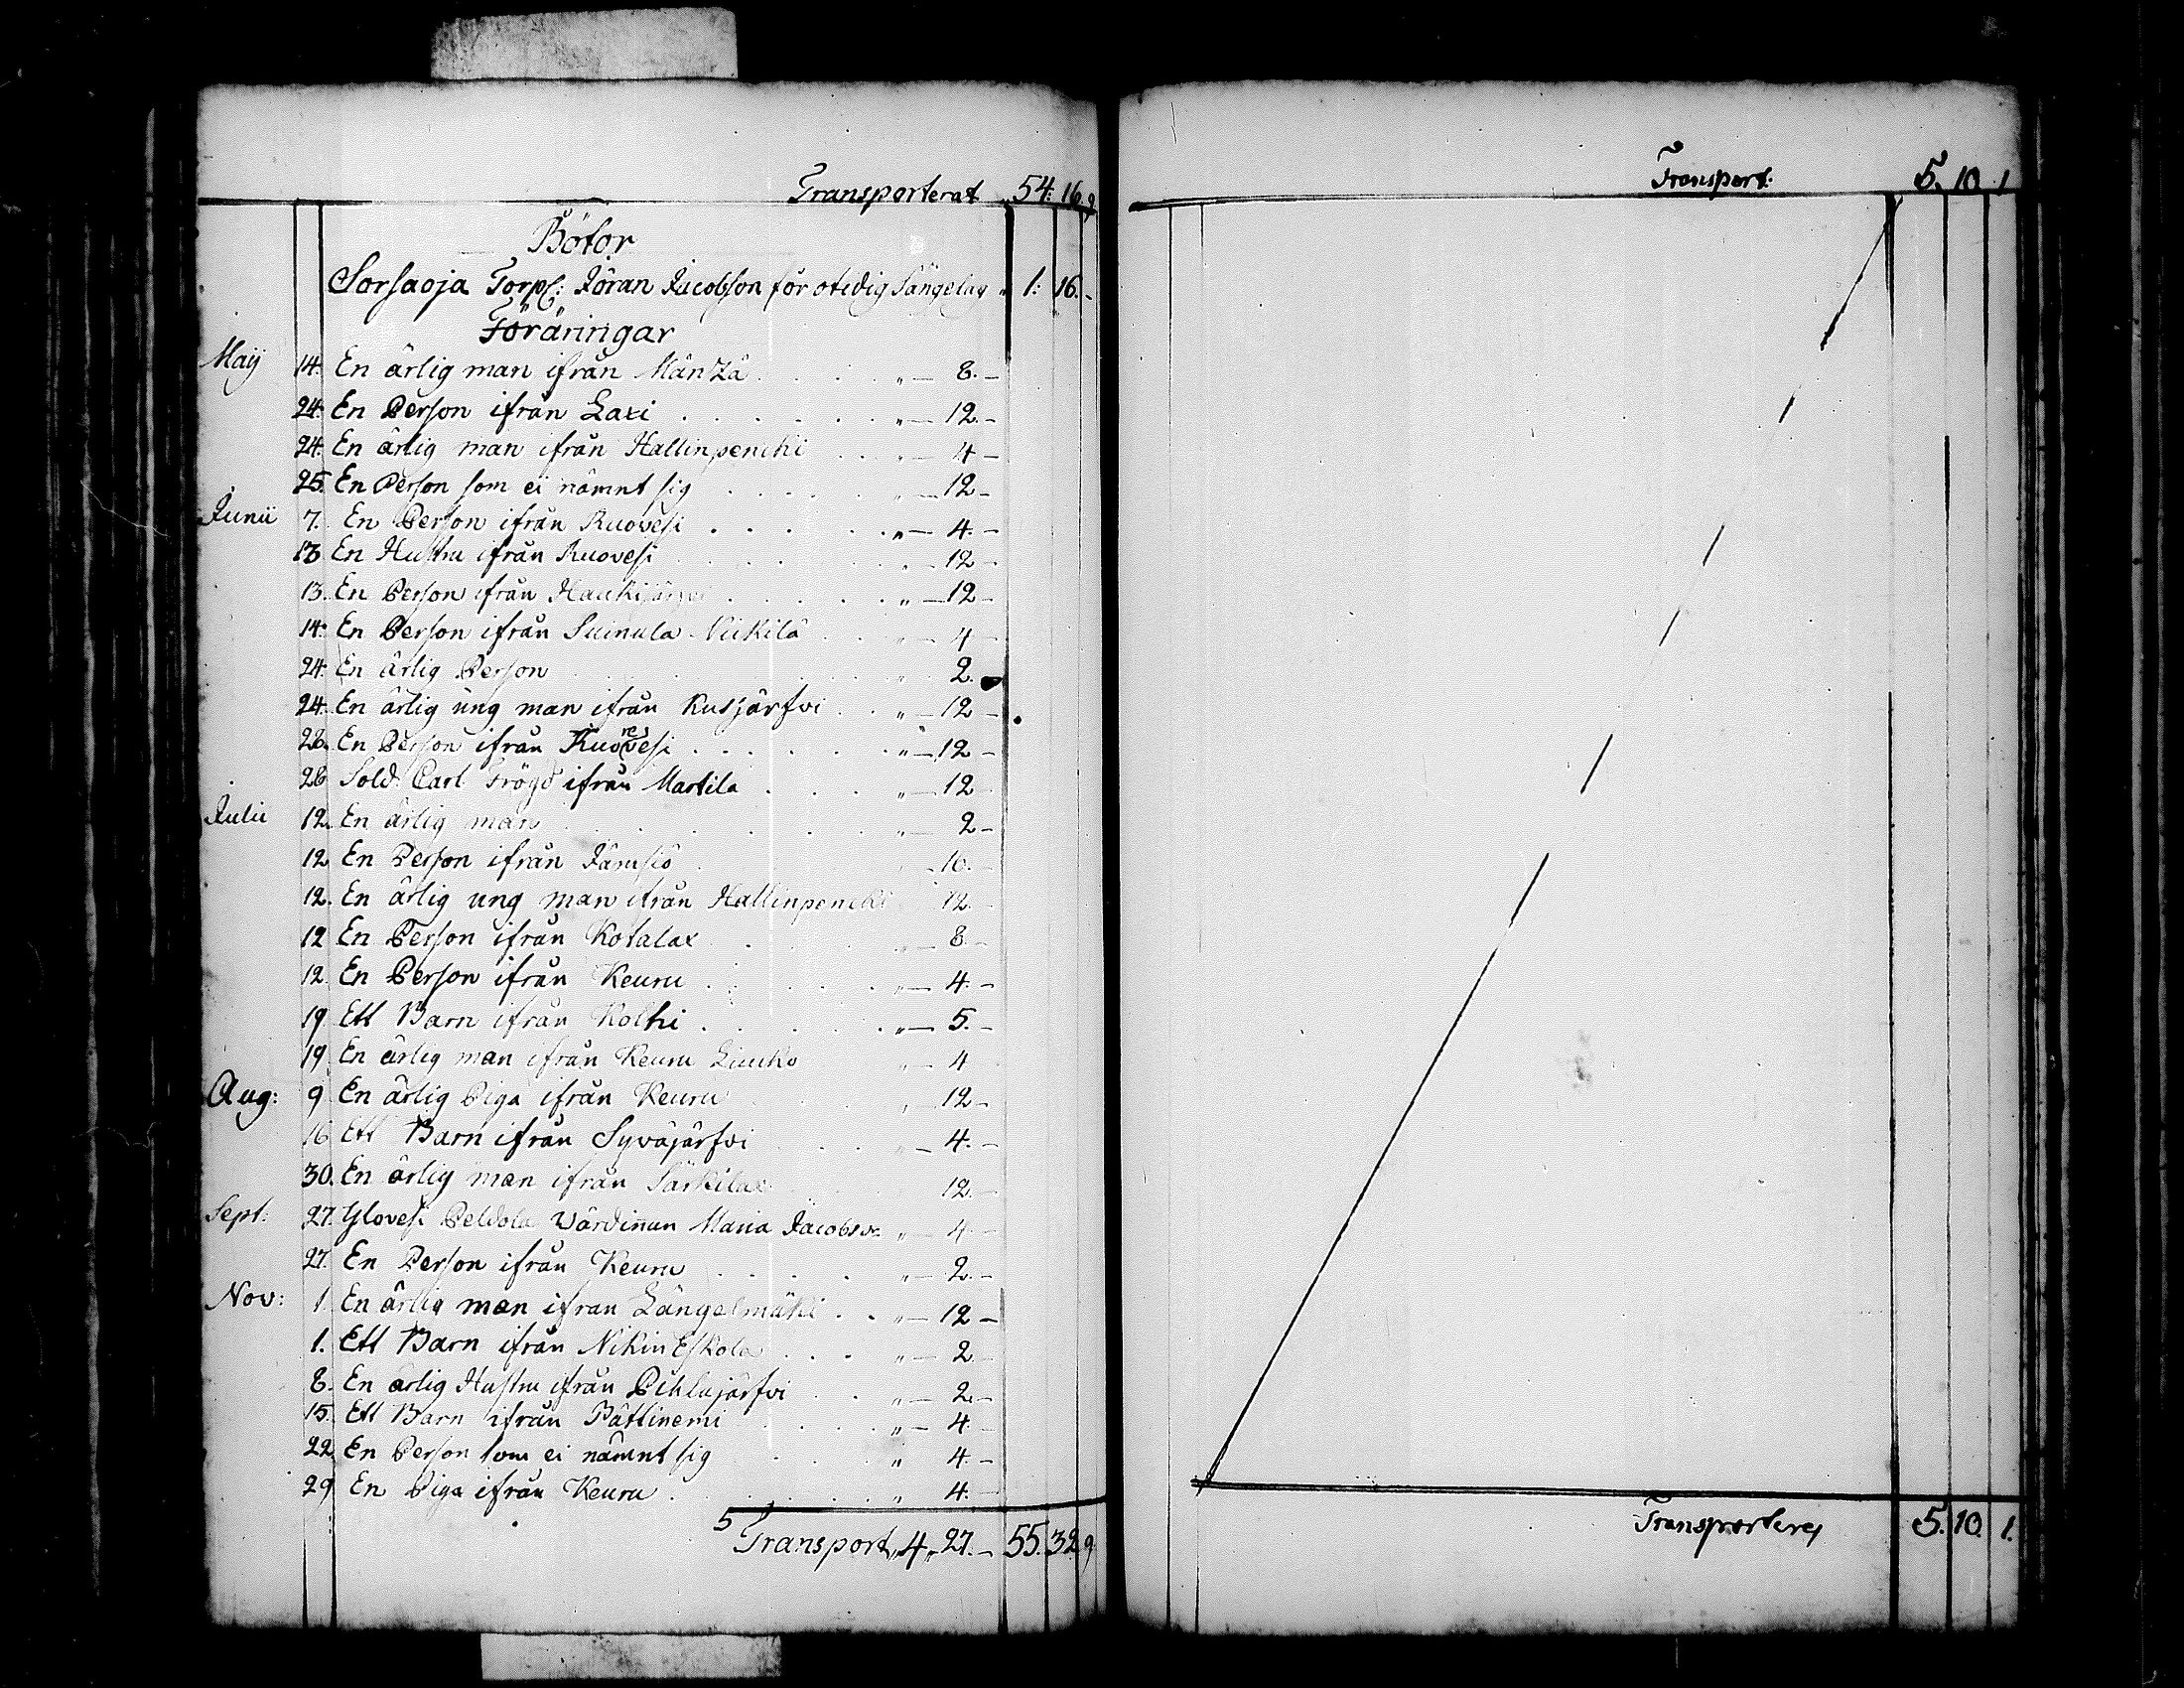 Transporterat 54. 16. 9
Böter
Sorsaoja Torp: Jöran Jacobson för otidig Sängelag „ 1: 16. -
Föräringar
Maÿ 14. En ärlig man ifrån Mänzä . . . . „ — 8. —
24. En Person ifrån Laxi . . . . . „ — 12. —
24. En ärlig man ifrån Hallinpenchi . . . „ — 4 —
25. En Person som ei nämnt sig . . . . . „ — 12 —
Junii 7. En Person ifrån Ruovesi . . . . . „ — 4. —
13 En Hustru ifrån Ruovesi . . . . . „ — 12 —
13. En Person ifrån Haukijärfvi . . . . . „ — 12 —
14. En Person ifrån Suinula Niikilä . . . „ — 4 —
24. En ärlig Person . . . . . „ 2.
24. En ärlig ung man ifrån Kusjärfvi . . „ — 12 —
28. En Person ifrån Ruovesi . . . . . . „ — 12 —
28 Sold. Carl Frögd ifrån Martila . . . . „ — 12
Julii 12. En ärlig man . . . . . . „ 2 —
12 En Person ifrån Jämsiö . 16. —
12. En ärlig ung man ifrån Hallinpenchi 12. —
12 En Person ifrån Kotalax . . . . „ — 8. —
12. En Person ifrån Keuru . . . . . „ — 4. —
19. Ett Barn ifrån Kolhi . . . . . „ — 5. —
19. En ärlig man ifrån Keuru Liuko „ — 4
Aug: 9 En ärlig Piga ifrån Keuru „ — 12 —
16 Ett Barn ifrån Syväjärfvi . . . . „ — 4. —
30. En ärlig man ifrån Särkilax 12. —
Sept: 27. Ylöves. Peldola Wärdinnan Maria Jacobsd. „ — 4. —
27. En Person ifrån Keuru . . . . „ — 2. —
Nov: 1. En ärlig man ifrån Längelmäki . . „ — 12 —
1. Ett Barn ifrån Nikin Eskola . . . „ — 2 —
8. En ärlig Hustru ifrån Pihlajärfvi . . „ — 2. —
15. Ett Barn ifrån Pättinemi . . . . „ — 4. —
22. En Person som ei nämnt sig . . . „ 4. —
29 En Piga ifrån Keuru . . . . . . „ 4. —
5
Transport „ 4 „ 27. — 55. 32. 9
Transport: 5. 10. 1
Transporteres 5. 10. 1.